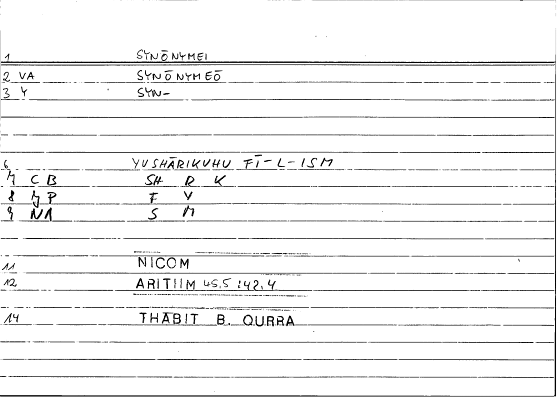 1 SYNŌNYMEI
2 VA SYNŌNYMEŌ
3 Y SYN-
6 YUSHĀRIKUHU FĪ-L-ISM
7 CB SH R K
8 P F Y
9 NA S M
11 NICOM
12 ARITIIM 45.5 :42.4
14 THĀBIT B. QURRA